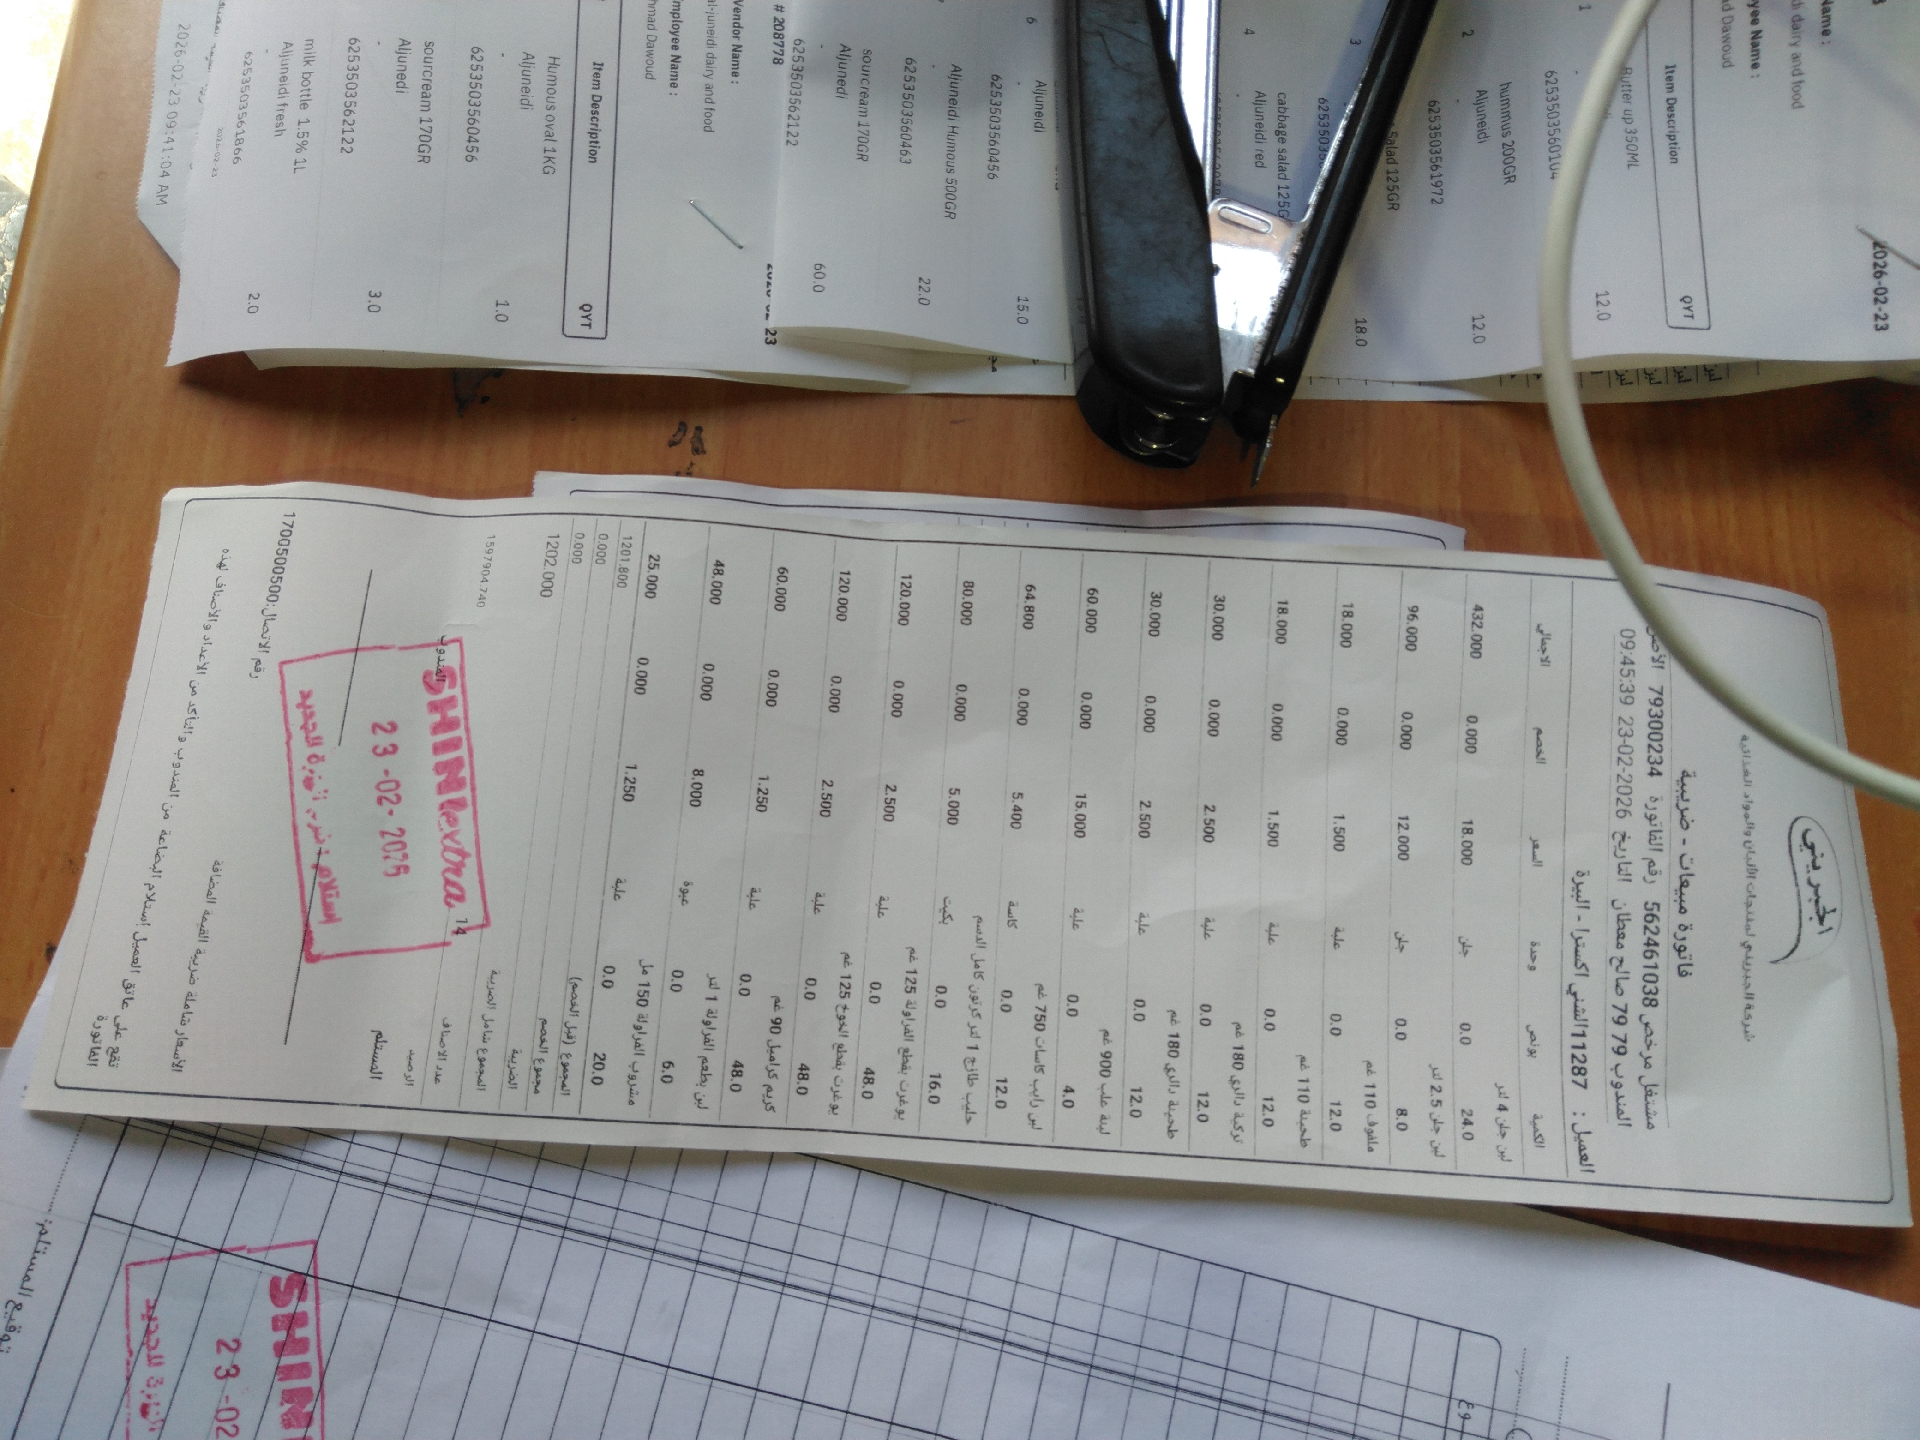 الجبريني
شركة الجبريني لمنتجات الألبان والمواد الغذائية
فاتورة مبيعات - ضريبية
مشتغل مرخص 562461038 رقم الفاتورة 79300234
المندوب 79 79 صالح معطان التاريخ 2026-02-23 09:45:39
العميل : 11287الشني اكسترا - البيرة
الكمية بونص وحدة السعر الخصم الاجمالي
لبن جلن 4 لتر
24.0 0.0 جلن 18.000 0.000 432.000
لبن جلن 2.5 لتر
8.0 0.0 جلن 12.000 0.000 96.000
ملفوف 110 غم
12.0 0.0 علبة 1.500 0.000 18.000
طحينة 110 غم
12.0 0.0 علبة 1.500 0.000 18.000
تركية دالري 180 غم
12.0 0.0 علبة 2.500 0.000 30.000
طحينة دالري 180 غم
12.0 0.0 علبة 2.500 0.000 30.000
لبنة علب 900 غم
4.0 0.0 علبة 15.000 0.000 60.000
لبن رايب كاسات 750 غم
12.0 0.0 كاسة 5.400 0.000 64.800
حليب طازج 1 لتر كرتون كامل الدسم
16.0 0.0 بكيت 5.000 0.000 80.000
يوغرت بقطع الفراولة 125 غم
48.0 0.0 علبة 2.500 0.000 120.000
يوغرت بقطع الخوخ 125 غم
48.0 0.0 علبة 2.500 0.000 120.000
كريم كراميل 90 غم
48.0 0.0 علبة 1.250 0.000 60.000
لبن بطعم الفراولة 1 لتر
6.0 0.0 عبوة 8.000 0.000 48.000
مشروب الفراولة 150 مل
20.0 0.0 علبة 1.250 0.000 25.000
المجموع (قبل الخصم) 1201.800
مجموع الخصم 0.000
الضريبة 0.000
المجموع شامل الضريبة 1202.000
عدد الاصناف 14
الرصيد 1597904.740
المستلم المندوب
SHINIextra
23-02-2026
الأسعار شاملة ضريبة القيمة المضافة رقم الاتصال:1700500500
تقع على عاتق العميل استلام البضاعة من المندوب والتأكد من الأعداد والأصناف لهذه
الفاتورة
2026-02-23
Name :
yee Name :
Item Description QYT
Butter up 350ML
12.0
6253503560104
2 hummus 200GR
Aljuneidi 12.0
6253503561972
Salad 125GR
3 18.0
cabbage salad 125G
4 Aljuneidi red
6 Aljuneidi 15.0
6253503560456
Aljuneidi Humous 500GR
22.0
6253503560463
sourcream 170GR
Aljuneidi 60.0
6253503562122
# 208778
Vendor Name :
al-juneidi dairy and food
mployee Name :
hmad Dawoud
Item Description QYT
Humous oval 1KG
Aljuneidi 1.0
6253503560456
sourcream 170GR
Aljuneidi 3.0
6253503562122
milk bottle 1.5% 1L
Aljuneidi fresh 2.0
6253503561866
2026-02-23 09:41:04 AM
توقيع المستلم:
SHINI
23-02